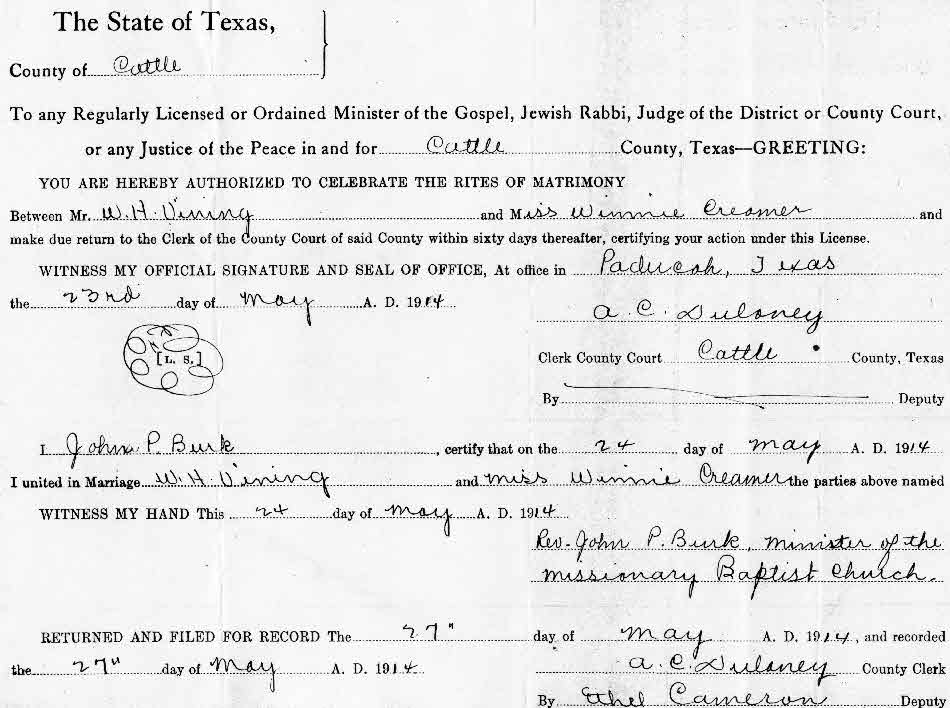 The State of Texas,
County of Cottle
To any Regularly Licensed or Ordained Minister of the Gospel, Jewish Rabbi, Judge of the District or County Court,
or any Justice of the Peace in and for Cottle County, Texas—GREETING:
YOU ARE HEREBY AUTHORIZED TO CELEBRATE THE RITES OF MATRIMONY
Between Mr. W. H. Vining and Miss Winnie Creamer and
make due return to the Clerk of the County Court of said County within sixty days thereafter, certifying your action under this License.
WITNESS MY OFFICIAL SIGNATURE AND SEAL OF OFFICE, At office in Paducah, Texas
the 23rd day of May A. D. 1914
A. C. Duloney
[L. S.]
Clerk County Court Cottle County, Texas
By Deputy
I John P. Burk, certify that on the 24 day of May A. D. 1914
I united in Marriage W. H. Vining and Miss Winnie Creamer the parties above named
WITNESS MY HAND This 24 day of May A. D. 1914
Rev. John P. Burk, minister of the
missionary Baptist Church.
RETURNED AND FILED FOR RECORD The 27" day of May A. D. 1914, and recorded
the 27" day of May A. D. 1914
A. C. Duloney County Clerk
By Ethel Cameron Deputy